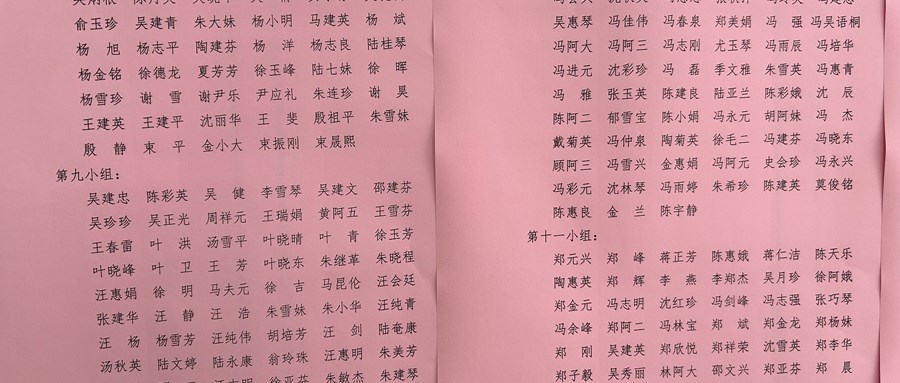 俞玉珍 吴建青 朱大妹 杨小明 马建英 杨 斌
杨 旭 杨志平 陶建芬 杨 洋 杨志良 陆桂琴
杨金铭 徐德龙 夏芳芳 徐玉峰 陆七妹 徐 晖
杨雪珍 谢 雪 谢尹乐 尹应礼 朱连珍 谢 昊
王建英 王建平 沈丽华 王 斐 殷祖平 朱雪妹
殷 静 束 平 金小大 束振刚 束晟熙
第九小组：
吴建忠 陈彩英 吴 健 李雪琴 吴建文 邵建芬
吴珍珍 吴正光 周祥元 王瑞娟 黄阿五 王雪芬
王春雷 叶 洪 汤雪平 叶晓晴 叶 青 徐玉芳
叶晓峰 叶 卫 王 芳 叶晓东 朱继革 朱晓程
汪惠娟 徐 明 马夫元 徐 吉 马昆伦 汪会廷
张建华 汪 静 汪 浩 朱雪妹 朱小华 汪纯青
汪 杨 杨雪芳 汪纯伟 胡培芳 汪 剑 陆奄康
汤秋英 陆文婷 陆永康 翁玲珠 汪惠明 朱美芳
徐亚芬 朱敏杰 朱建琴
吴惠琴 冯佳伟 冯春泉 郑美娟 冯 强 冯吴语桐
冯阿大 冯阿三 冯志刚 尤玉琴 冯雨辰 冯培华
冯进元 沈彩珍 冯 磊 季文雅 朱雪英 冯惠青
冯 雅 张玉英 陈建良 陆亚兰 陈彩娥 沈 辰
陈阿二 郁雪宝 陈小娟 冯永元 胡阿妹 冯 杰
戴菊英 冯仲泉 陶菊英 徐毛二 冯建芬 冯晓东
顾阿三 冯雪兴 金惠娟 冯阿元 史会珍 冯永兴
冯彩元 沈林琴 冯雨婷 朱希珍 陈建英 莫俊铭
陈惠良 金 兰 陈宇静
第十一小组：
郑元兴 郑 峰 蒋正芳 陈惠娥 蒋仁洁 陈天乐
陶惠英 郑 辉 李 燕 李郑杰 吴月珍 徐阿娥
郑金元 冯志明 沈红珍 冯剑峰 冯志强 张巧琴
冯余峰 郑阿二 冯林宝 郑 斌 郑金龙 郑杨妹
郑 刚 吴建英 郑欣悦 郑祥荣 沈雪英 郑李华
郑子毅 吴秀丽 林阿大 邵文兴 郑亚芬 郑 晨